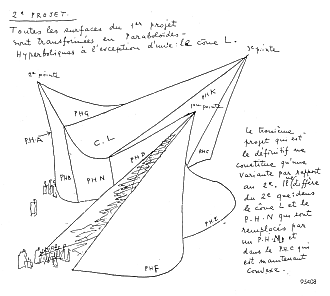 2e PROJET.
Toutes les surfaces du 1er projet
sont transformées en Paraboloïdes-
Hyperboliques à l'exception d'une: le cône L.
3e pointe
2e pointe
PHK
1ère pointe
PHG
PHA
C.L
PHD
PHC
PHB
PHN
PHE
PHF
le troisième
projet qui est
le définitif ne
constitue qu'une
variante par rapport
au 2e. Il diffère
du 2e que dans
le cône L et le
P-H-N qui sont
remplacés par
un P-H- et
dans le qui
est maintenant
convexe.